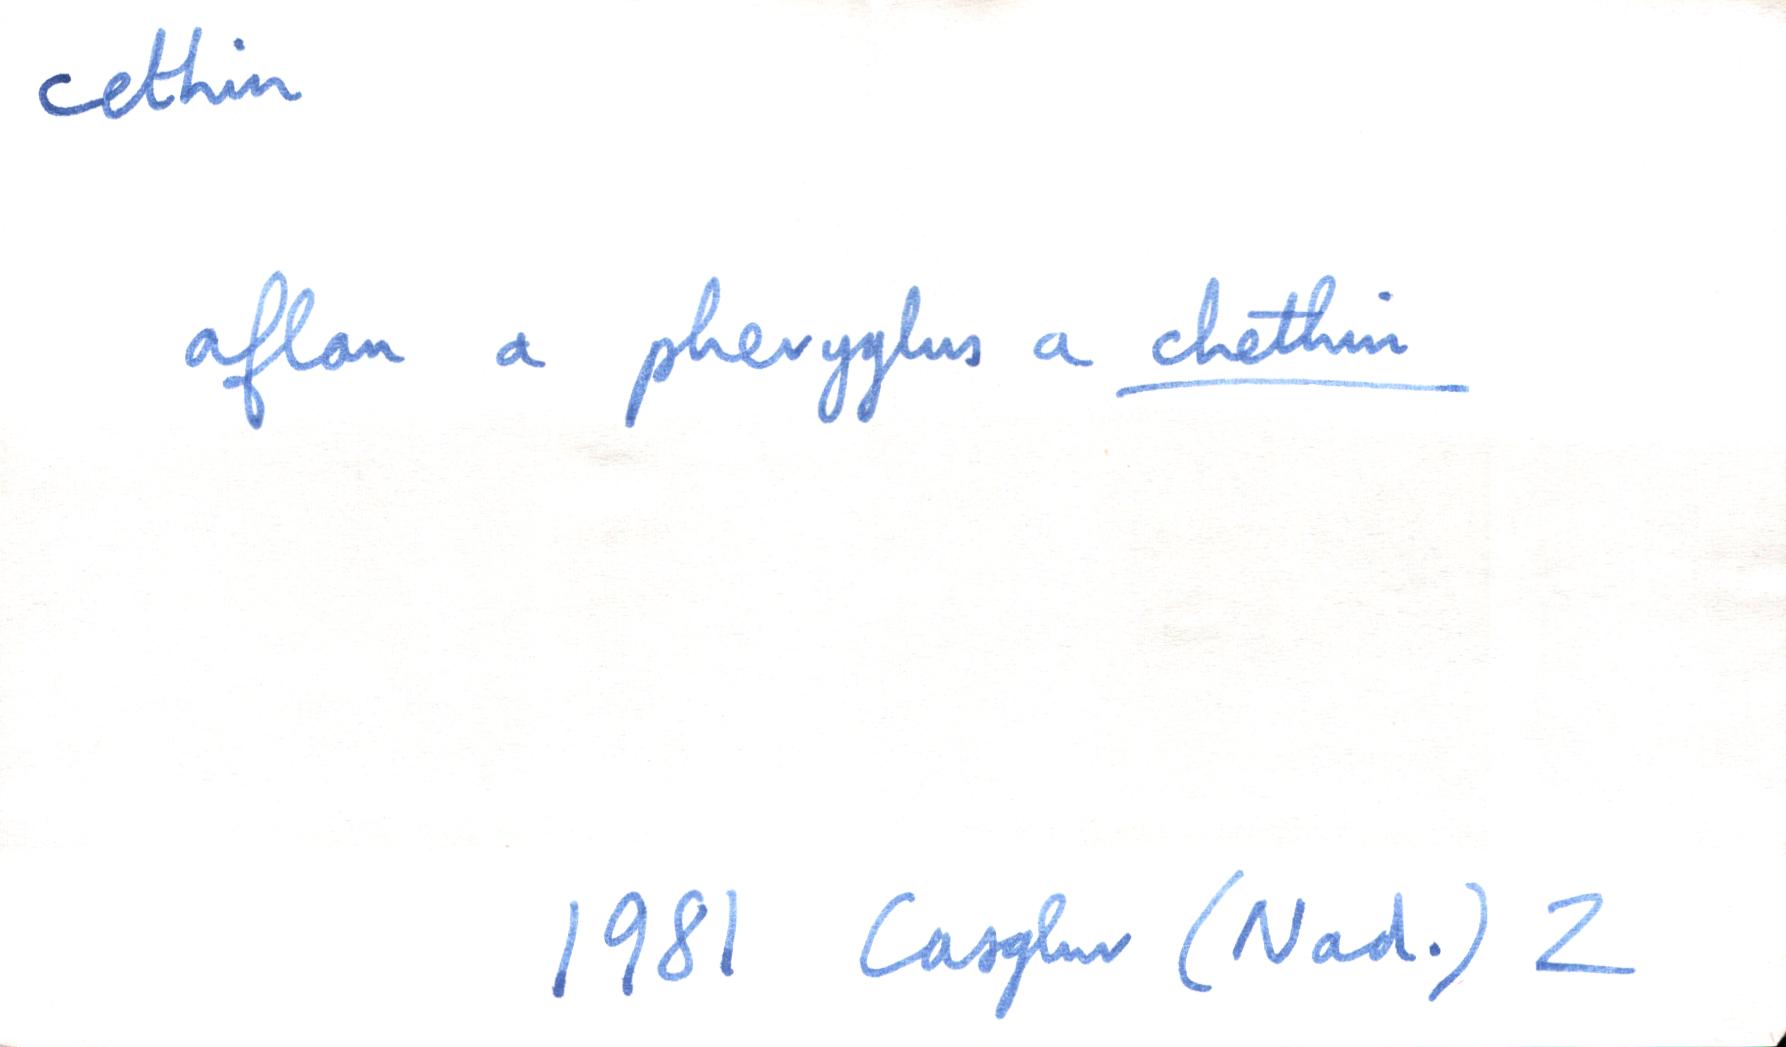 cethin
aflan a pheryglus a chethin
1981 Casglwr (Nad.) 2